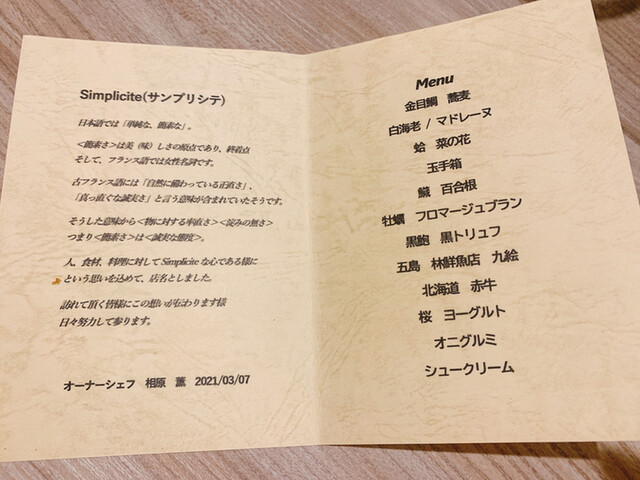 Simplicite(サンプリシテ)
日本語では「単純な、簡素な」。
<簡素さ>は美(味)しさの原点であり、終着点
そして、フランス語では女性名詞です。
古フランス語には「自然に備わっている正直さ」、
「真っ直ぐな誠実さ」と言う意味が含まれていたそうです。
そうした意味から<物に対する率直さ><淀みの無さ>
つまり<簡素さ>は<誠実な態度>。
人、食材、料理に対してSimpliciteな心である様に
という思いを込めて、店名としました。
訪れて頂く皆様にこの想いが伝わります様
日々努力して参ります。
オーナーシェフ 相原 薫 2021/03/07
Menu
金目鯛 蕎麦
白海老 / マドレーヌ
蛤 菜の花
玉手箱
鱵 百合根
牡蠣 フロマージュブラン
黒鮑 黒トリュフ
五島 林鮮魚店 九絵
北海道 赤牛
桜 ヨーグルト
オニグルミ
シュークリーム